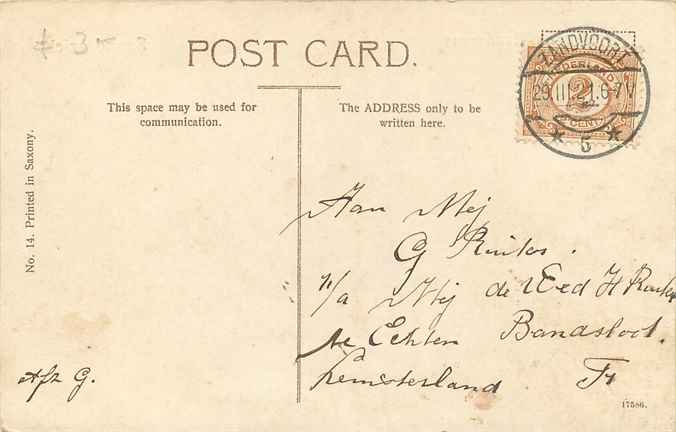 POST CARD.
This space may be used for
communication.
The ADDRESS only to be
written here.
No. 14. Printed in Saxony.
ZANDVOORT
NEDERLAND
29 III 21. 6-7V
2
CENT
5
Aan Mej
G Ruiter.
p/a Mej de Wed H Ruiter
te Echten Bandsloot.
Lemsterland Fr
Afz G.
17586.